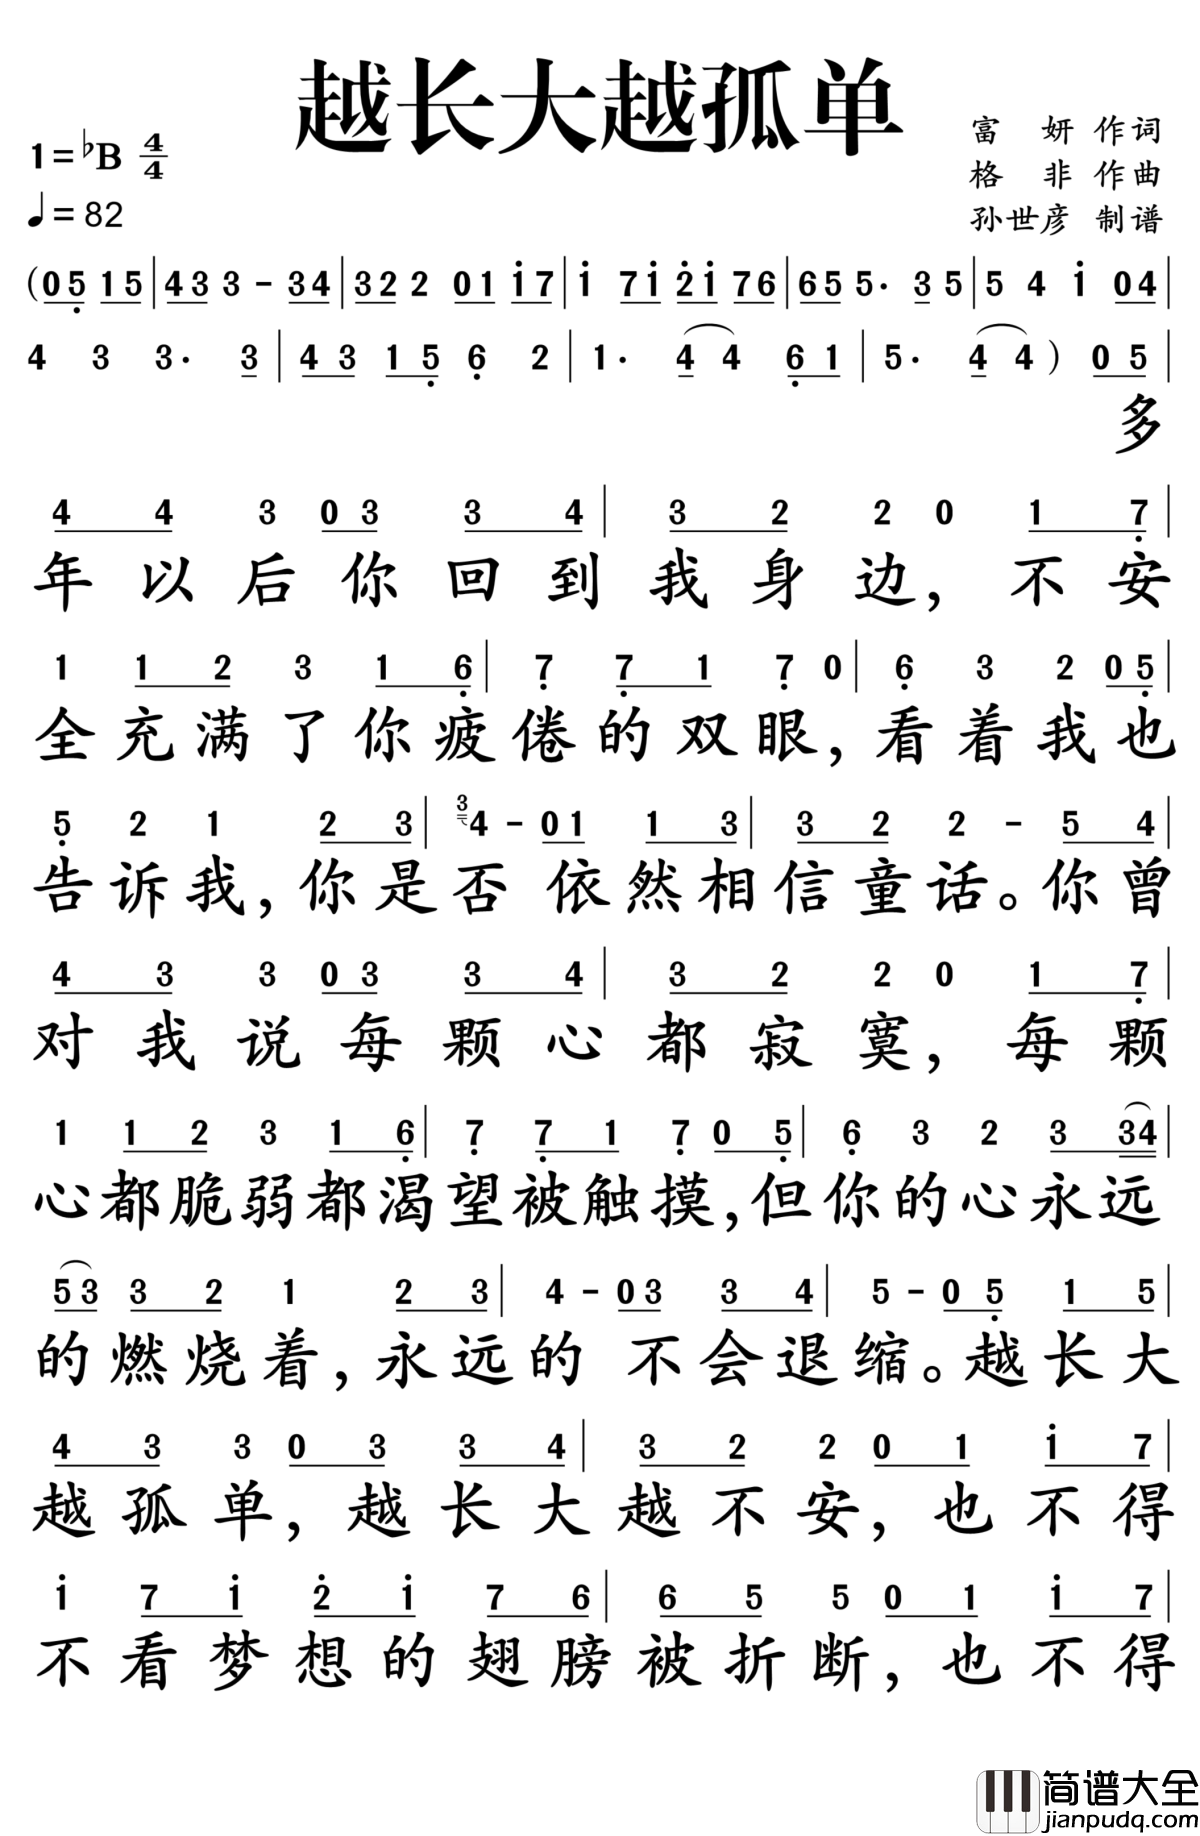 越长大越孤单
1=♭B 4/4
♩=82
富 妍 作词
格 非 作曲
孙世彦 制谱
(05̣ 15|433-34|3222 01 i7|i 7i 2̇i 76|655 5. 35|5 4 i 04|
4 3 3. 3|43 15̣ 6̣ 2|1. 44 6̣1|5. 44) 05|
多
4 4 3 03 3 4|3 2 2 0 1 7̣|
年以后你回到我身边,不安
1 1 2 3 1 6̣|7̣ 7̣ 1 7̣ 0|6̣ 3 2 05̣|
全充满了你疲倦的双眼,看着我也
5̣ 2 1 2 3|³4-01 1 3|3 2 2-5 4|
告诉我,你是否 依然相信童话。你曾
4 3 3 03 3 4|3 2 2 0 1 7̣|
对我说每颗心都寂寞,每颗
1 1 2 3 1 6̣|7̣ 7̣ 1 7̣ 0 5̣|6̣ 3 2 3 34|
心都脆弱都渴望被触摸,但你的心永远
53 3 2 1 2 3|4-03 3 4|5-0 5̣ 1 5|
的燃烧着,永远的 不会退缩。越长大
4 3 3 0 3 3 4|3 2 2 0 1 i 7|
越孤单,越长大越不安,也不得
i 7 i 2̇ i 7 6|6 5 5 0 1 i 7|
不看梦想的翅膀被折断,也不得
简谱大全
jianpudq.com